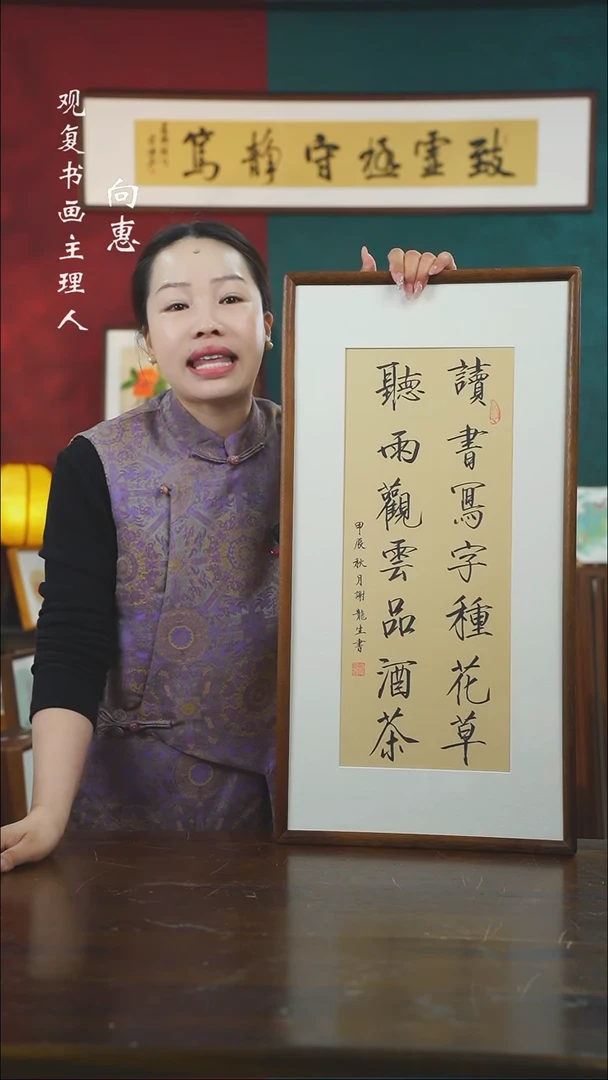 观复书画主理人
向惠
致虚极守静笃
讀書寫字種花草
聽雨觀雲品酒茶
甲辰秋月謝龍生書